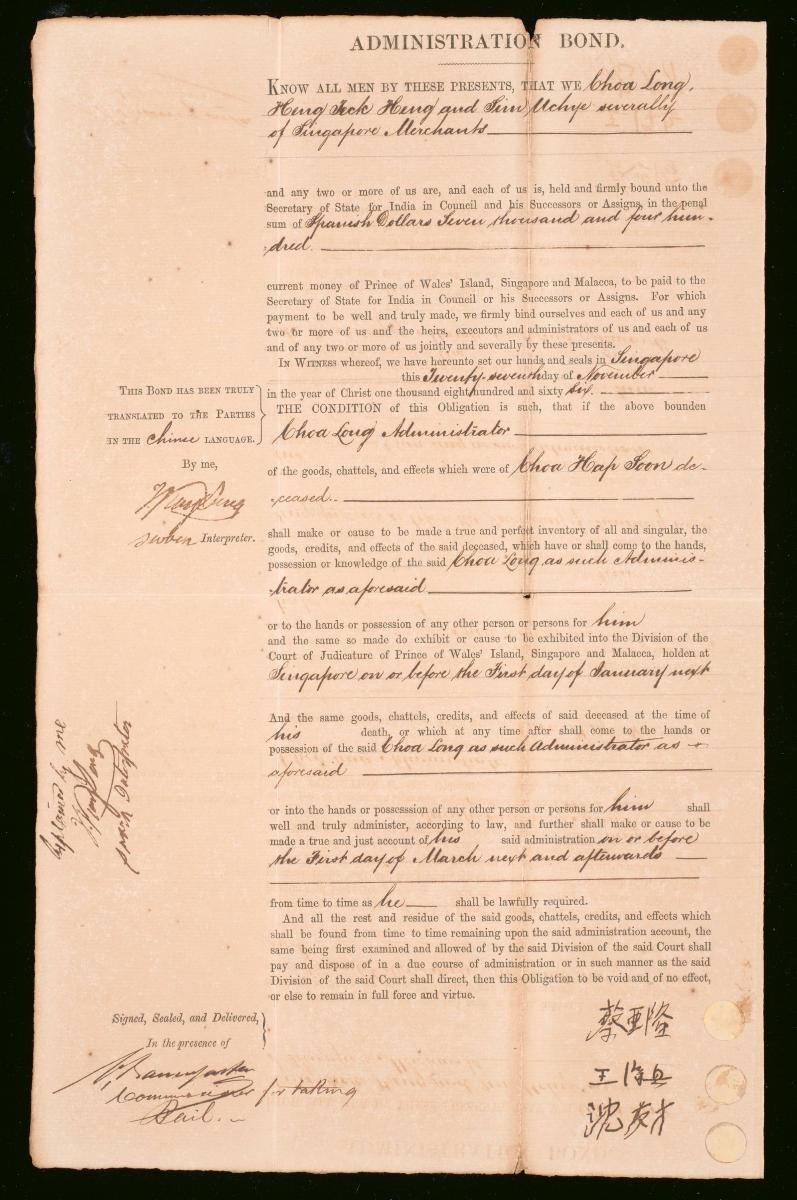 ADMINISTRATION BOND.
KNOW ALL MEN BY THESE PRESENTS, THAT WE Choa Long,
Heng Teck Heng and Sim severally
of Singapore Merchants
and any two or more of us are, and each of us is, held and firmly bound unto the
Secretary of State for India in Council and his Successors or Assigns, in the penal
sum of Spanish Dollars Seven thousand and four hun-
dred.
current money of Prince of Wales' Island, Singapore and Malacca, to be paid to the
Secretary of State for India in Council or his Successors or Assigns. For which
payment to be well and truly made, we firmly bind ourselves and each of us and any
two or more of us and the heirs, executors and administrators of us and each of us
and of any two or more of us jointly and severally by these presents.
IN WITNESS whereof, we have hereunto set our hands and seals in Singapore
this Twenty-seventh day of November
in the year of Christ one thousand eight hundred and sixty six.
THIS BOND HAS BEEN TRULY
TRANSLATED TO THE PARTIES
IN THE Chinese LANGUAGE.
By me,
Interpreter.
THE CONDITION of this Obligation is such, that if the above bounden
Choa Long Administrator
of the goods, chattels, and effects which were of Choa Hap Soon de-
ceased.
shall make or cause to be made a true and perfect inventory of all and singular, the
goods, credits, and effects of the said deceased, which have or shall come to the hands,
possession or knowledge of the said Choa Long as such Adminis-
trator as aforesaid
or to the hands or possession of any other person or persons for him
and the same so made do exhibit or cause to be exhibited into the Division of the
Court of Judicature of Prince of Wales' Island, Singapore and Malacca, holden at
Singapore on or before the First day of January next
And the same goods, chattels, credits, and effects of said deceased at the time of
his death, or which at any time after shall come to the hands or
possession of the said Choa Long as such Administrator as
aforesaid
or into the hands or possesssion of any other person or persons for him shall
well and truly administer, according to law, and further shall make or cause to be
made a true and just account of his said administration on or before
the First day of March next and afterwards
from time to time as he shall be lawfully required.
And all the rest and residue of the said goods, chattels, credits, and effects which
shall be found from time to time remaining upon the said administration account, the
same being first examined and allowed of by the said Division of the said Court shall
pay and dispose of in a due course of administration or in such manner as the said
Division of the said Court shall direct, then this Obligation to be void and of no effect,
or else to remain in full force and virtue.
Explained by me
Signed, Sealed, and Delivered,
In the presence of
Commissioner for taking
Bail.
蔡亜隆
王
沈